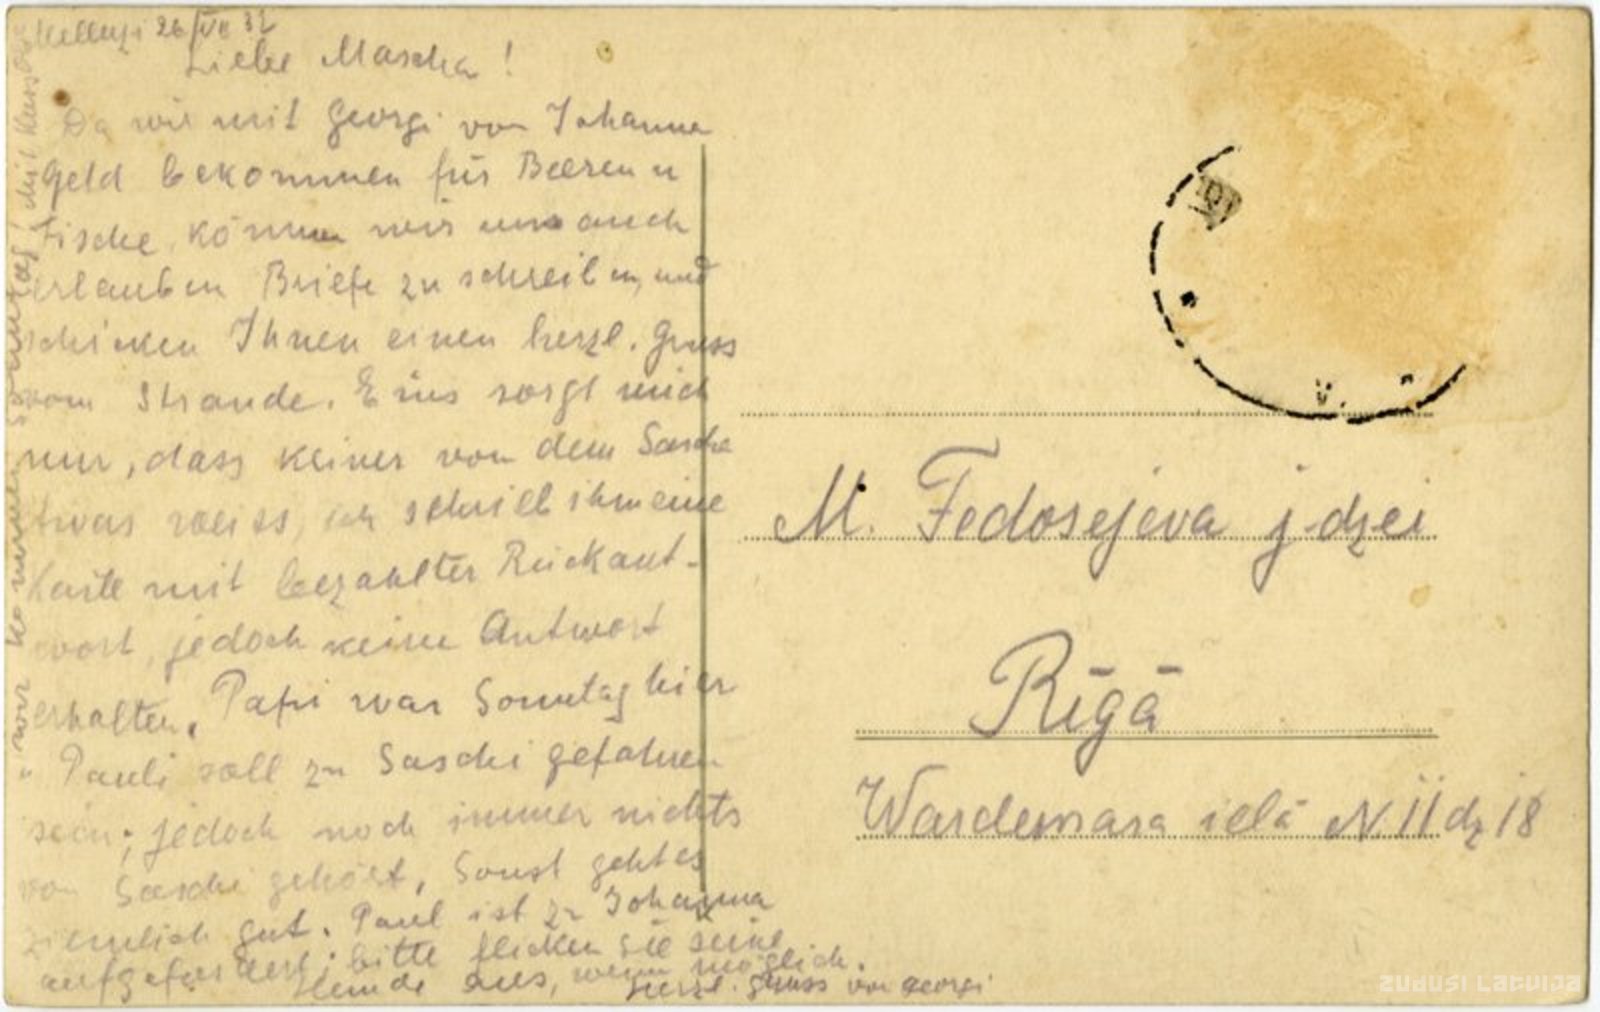 26/VII 32
Liebe Mascha!
Da wir mit Georgi von Johanna
Geld bekommen für Beeren u
Fische, können wir uns auch
erlauben Briefe zu schreiben, und
schicken Ihnen einen herzl. Gruss
vom Strande. Eins sorgt mich
nur, dass keiner von dem Sascha
etwas weiss, ich schrieb ihm eine
Karte mit bezahlter Rückant-
wort, jedoch keine Antwort
erhalten. Papi war Sonntag hier
" Pauli soll zu Saschi gefahren
sein; jedoch noch immer nichts
von Saschi gehört, Sonst geht es
ziemlich gut. Paul ist zu Johanna
aufgefordert; bitte flicken Sie seine
Hemde aus, wenn möglich.
Herzl. Gruss von Georgi
wir kommen Sonntag! mit
M. Fedosejeva j-dzei
Rīgā
Wardemara ielā N. 11 dz 18
ZUDUSI LATVIJA